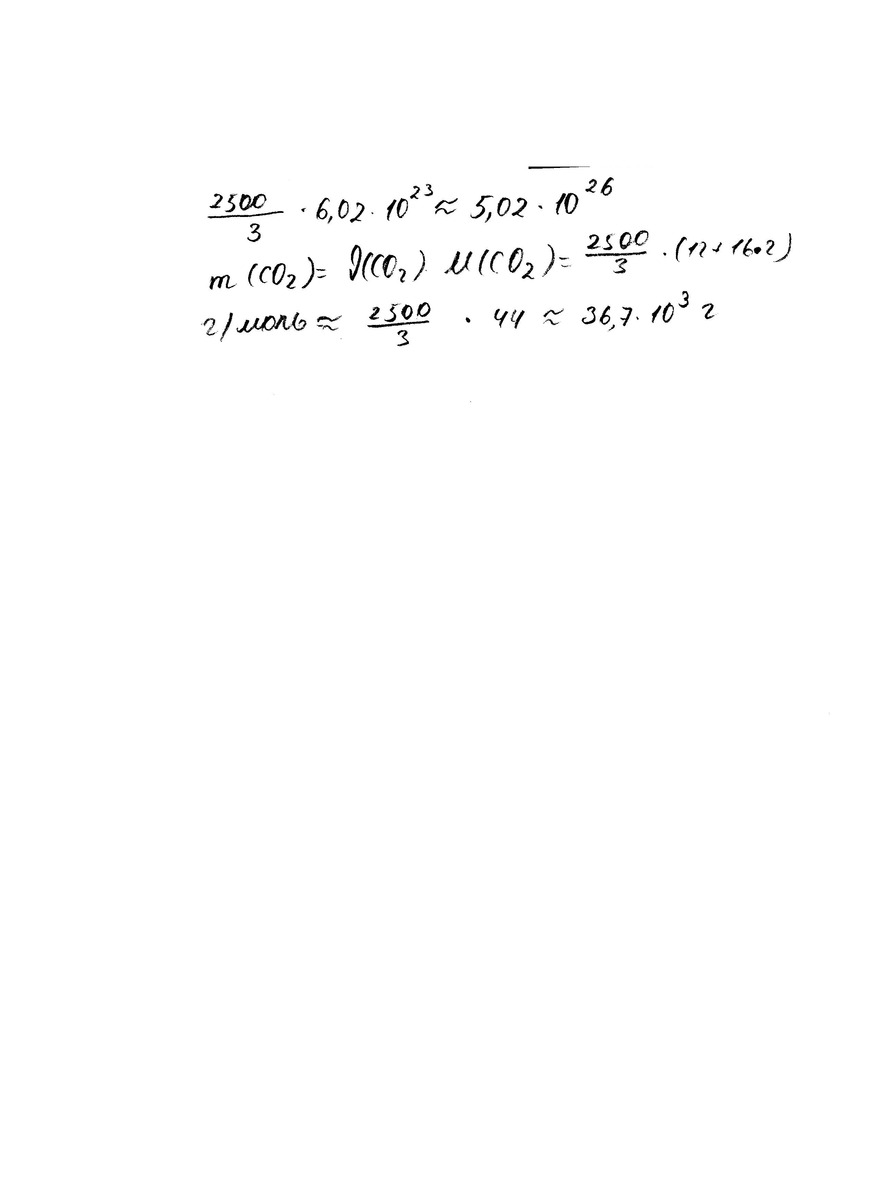 2500/3 · 6,02 · 10^23 ≈ 5,02 · 10^26
m (CO₂) = ν(CO₂) · M(CO₂) = 2500/3 · (12 + 16·2)
г/моль ≈ 2500/3 · 44 ≈ 36,7 · 10^3 г